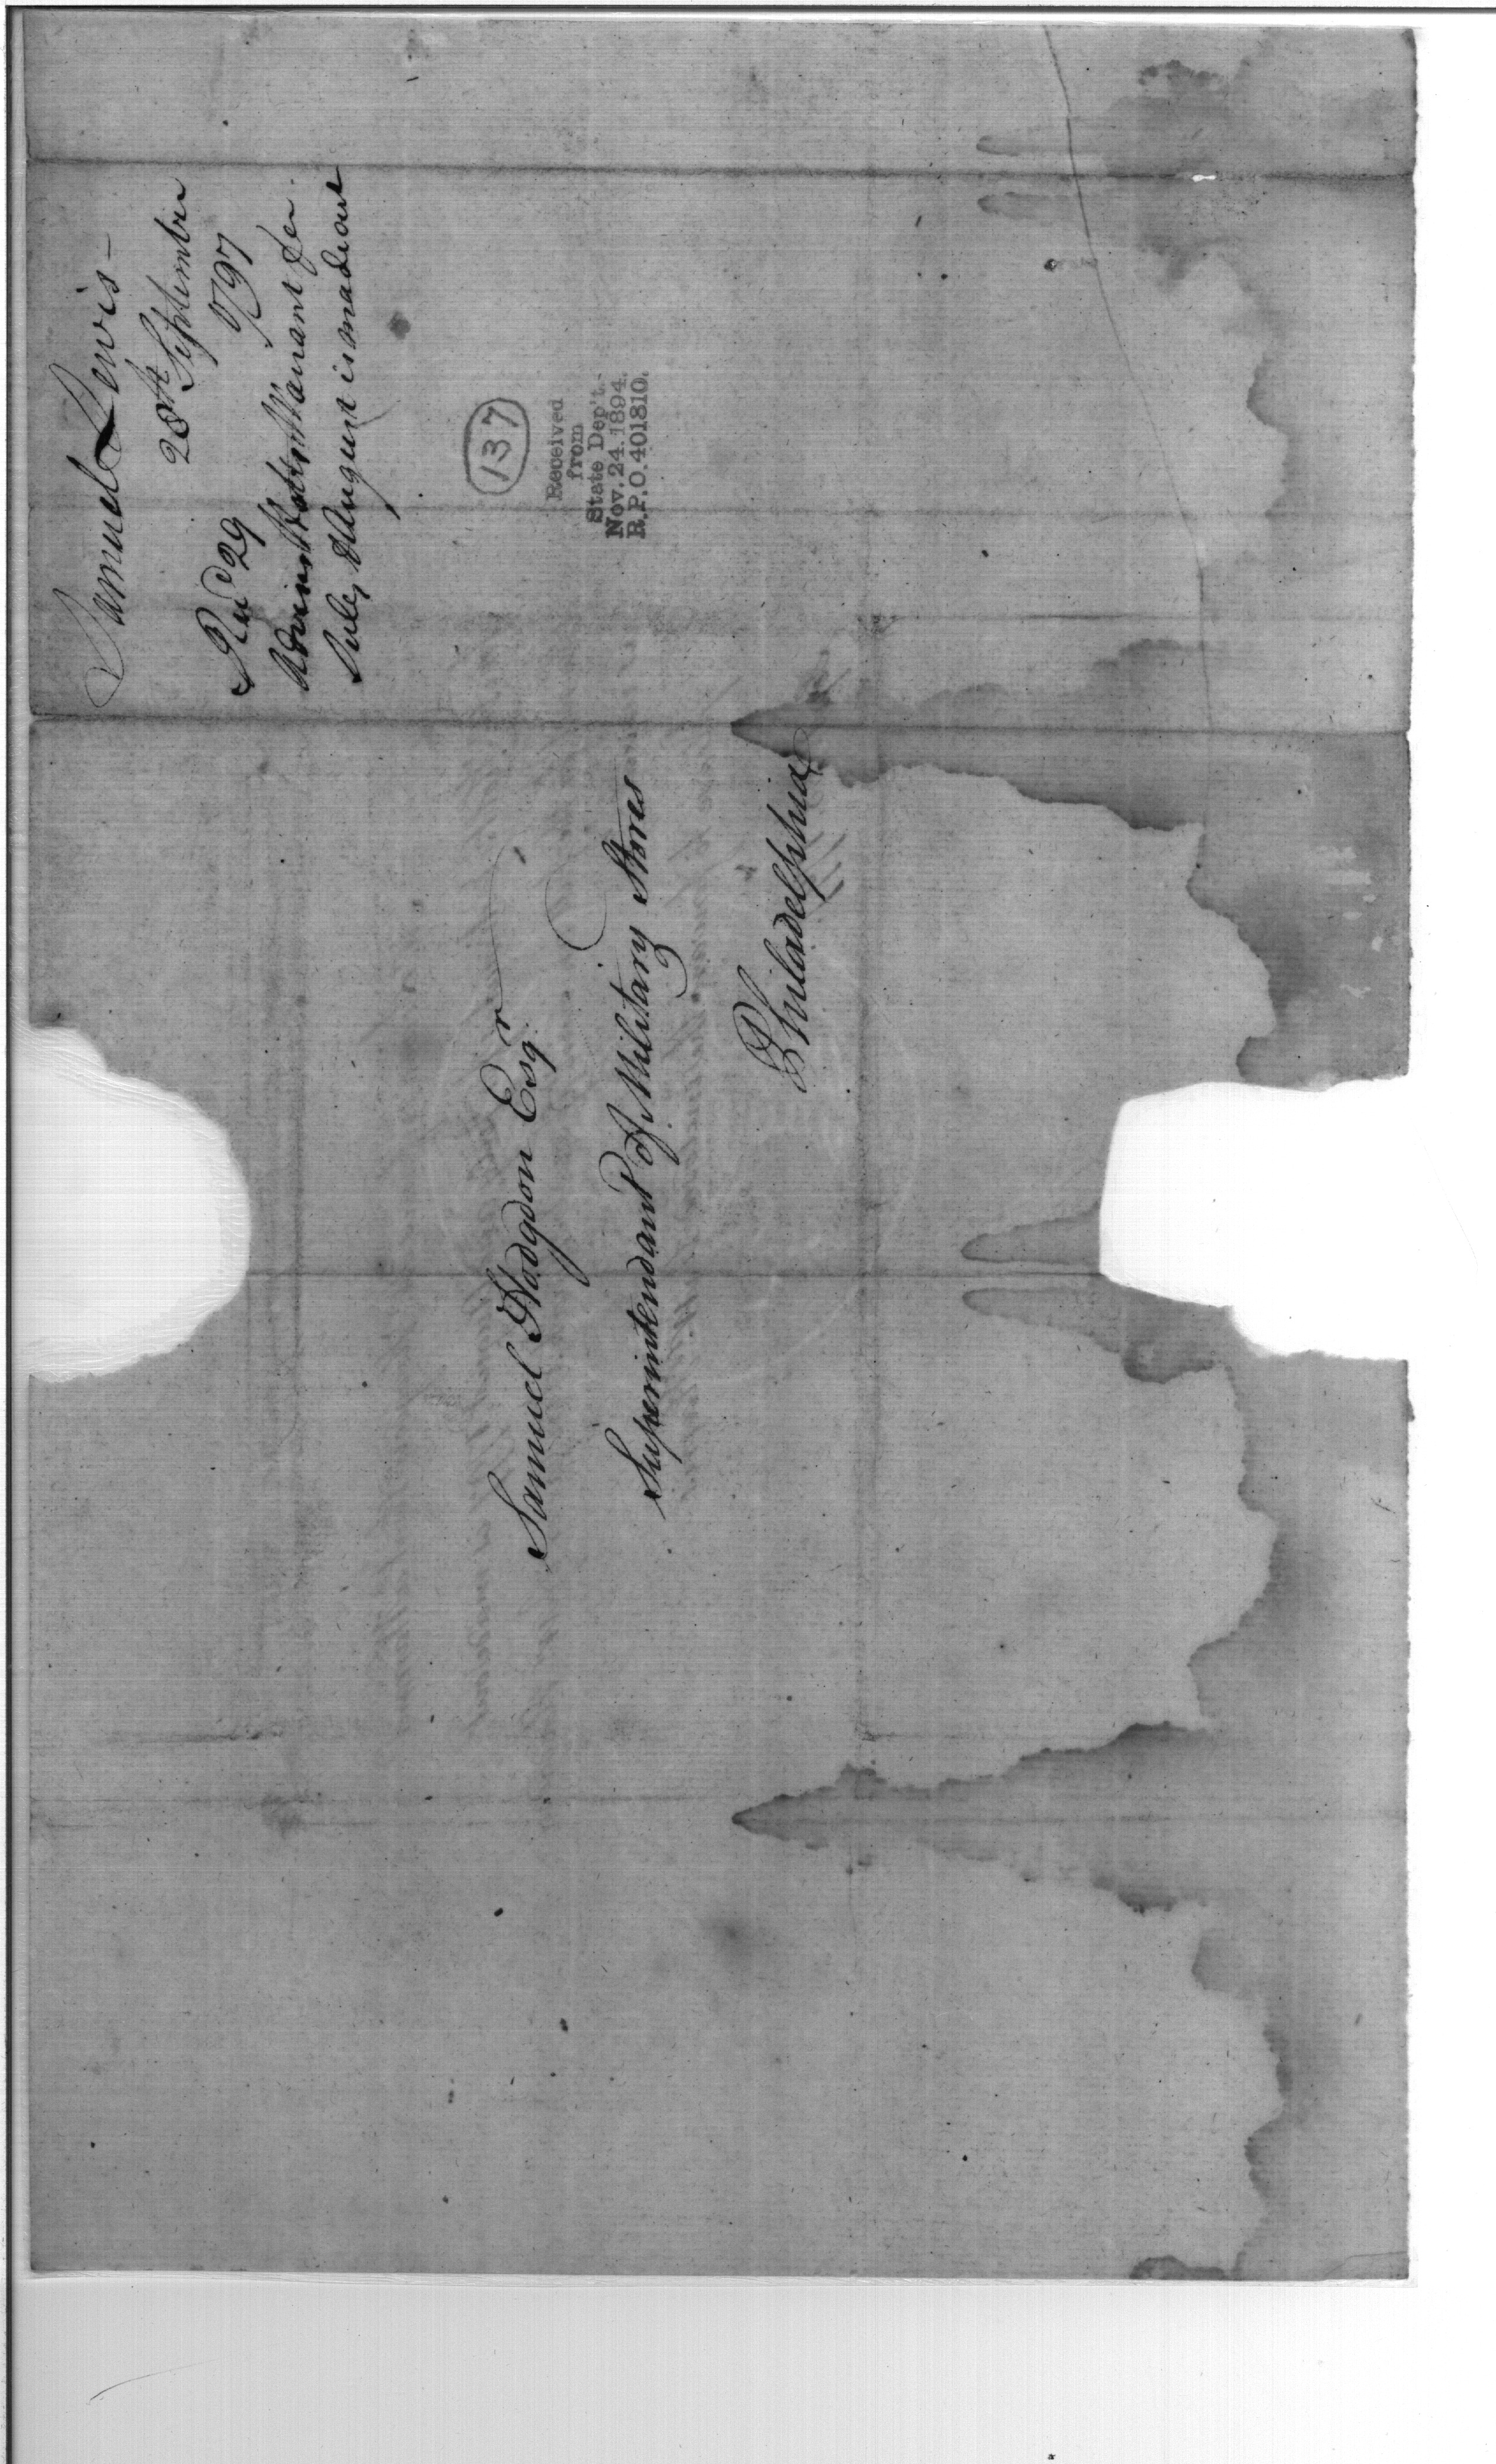 Samuel Lewis –
28th September
1797
Recd 29
Warrant for
July & August is made out
137
Received
from
State Dep't.
Nov. 24. 1894.
R.P.O. 401810.
Samuel Hodgdon Esqr
Superintendant of Military Stores
Philadelphia